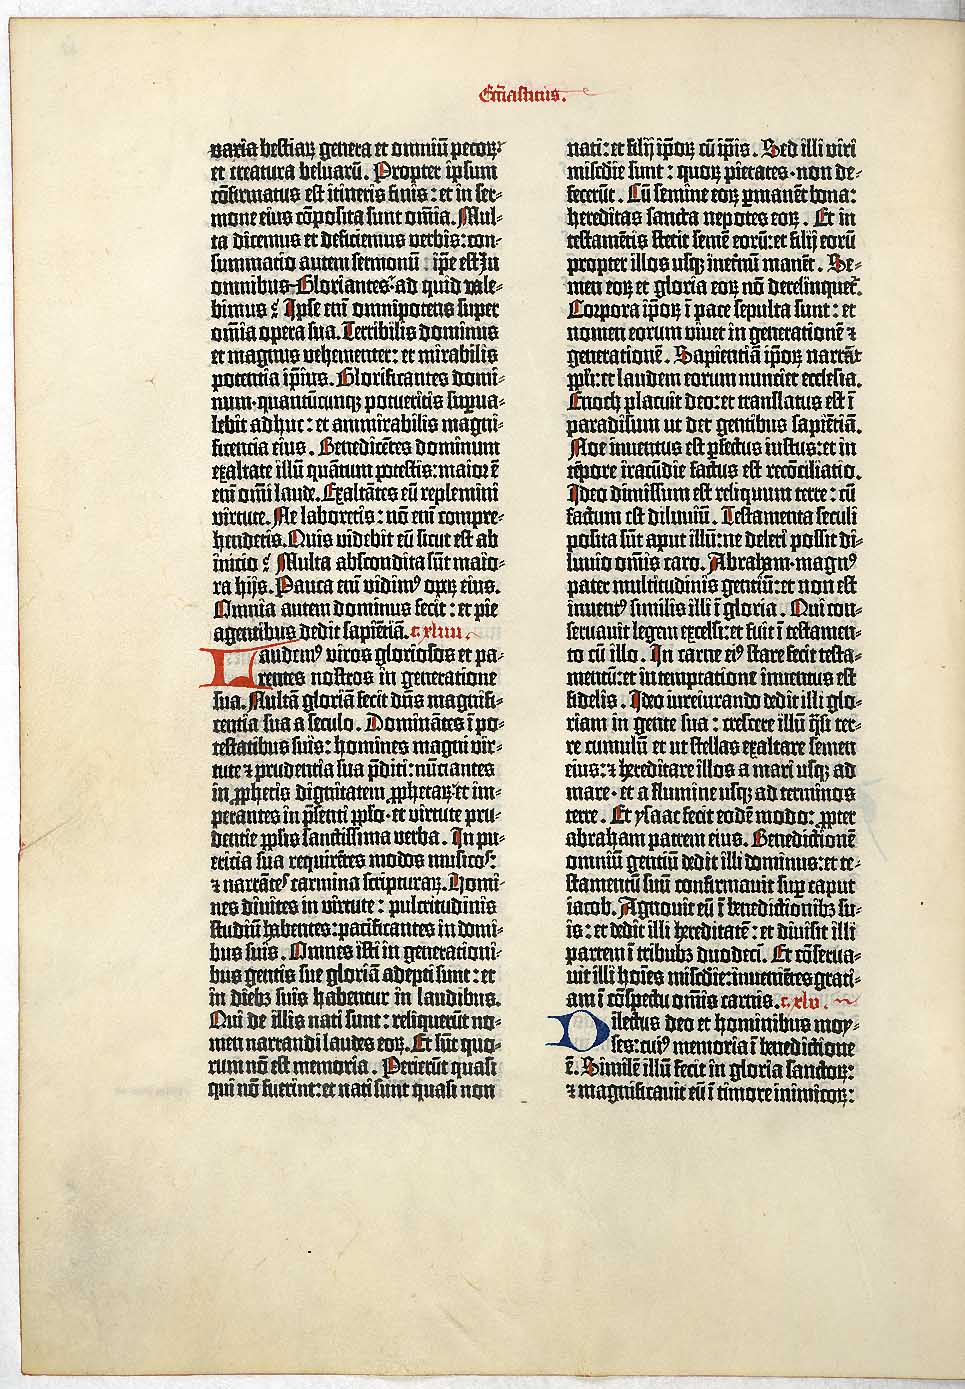 Eccłiasticus.
varia bestiaꝝ genera et omniū pecoꝝ:
et creatura beluarū. Propter ipsum
cōfirmatus est itineris finis: et in ser-
mone eius cōposita sunt om̄ia. Mul-
ta dicemus et deficiemus verbis: con-
summatio autem sermonū ip̄e est In
omnibus. Gloriantes ad quid vale-
bimus? Ipse em̄ omnipotens super
om̄ia opera sua. Terribilis dominus
et magnus vehementer: et mirabilis
potentia ip̄ius. Glorificantes domi-
num quantūcunqꝫ potueritis suꝑua-
lebit adhuc: et ammirabilis magni-
ficentia eius. Benedicētes dominum
exaltate illū quātum potestis: maior ē
em̄ om̄i laude. Exaltātes eū replemini
virtute. Ne laboretis: nō em̄ compre-
hendetis. Quis videbit eū sicut est ab
inicio? Multa abscondita sūt maio-
ra hijs. Pauca em̄ vidimꝰ opeꝝ eius.
Omnia autem dominus fecit: et pie
agentibus dedit sapiētiā. c. xliiii.
Laudemꝰ viros gloriosos et pa-
rentes nostros in generatione
sua. Multā gloriā fecit dn̄s magnifi-
centia sua a seculo. Dominātes ī po-
testatibus suis: homines magni vir-
tute ⁊ prudentia sua p̄diti: nūciantes
in ꝓphetis dignitatem ꝓphetaꝝ: et im-
perantes in p̄senti pp̄lo. et virtute pru-
dentie pp̄lis sanctissima verba. In pu-
ericia sua requirētes modos musicos:
⁊ narrātes carmina scripturaꝝ. Homi-
nes divites in virtute: pulcritudinis
studiū habentes: pacificantes in domi-
bus suis. Omnes isti in generationi-
bus gentis sue gloriā adepti sunt: et
in diebꝫ suis habentur in laudibus.
Qui de illis nati sunt: reliquerūt no-
men narrandi laudes eoꝝ. Et sūt quo-
rum nō est memoria. Perierūt quasi
qui nō fuerint: et nati sunt quasi non
nati: et filij ip̄oꝝ cū ip̄is. Sed illi viri
mis̄die sunt: quoꝝ pietates non de-
fecerūt. Cū semine eoꝝ ꝑmanēt bona:
hereditas sancta nepotes eoꝝ. Et in
testamētis stetit semē eorū: et filij eorū
propter illos usqꝫ inet̄nū manēt. Se-
men eoꝝ et gloria eoꝝ nō derelinquet̄.
Corpora ip̄oꝝ ī pace sepulta sunt: et
nomen eorum vivet in generationē ⁊
generationē. Sapientiā ip̄oꝝ narrāt
pp̄li: et laudem eorum nunciet ecclesia.
Enoch placuit deo: et translatus est ī
paradisum ut det gentibus sapiētiā.
Noe inuentus est ꝑfectus iustus: et in
tēpore iracūdie factus est recōciliatio.
Ideo dimissum est reliquum terre: cū
factum est diluuiū. Testamenta seculi
posita sūt aput illū: ne deleri possit di-
luuio om̄is caro. Abraham magnꝰ
pater multitudinis gentiū: et non est
inuentꝰ similis illi ī gloria. Qui con-
seruauit legem excelsi: et fuit ī testamen-
to cū illo. In carne eiꝰ stare fecit testa-
mentū: et in temptatione inuentus est
fidelis. Ideo iureiurando dedit illi glo-
riam in gente sua: crescere illū q̄si ter-
re cumulū et ut stellas exaltare semen
eius: ⁊ hereditare illos a mari usqꝫ ad
mare. et a flumine usqꝫ ad terminos
terre. Et ysaac fecit eodē modo: ꝓpter
abraham patrem eius. Benedictionē
omniū gentiū dedit illi dominus: et te-
stamentū suū confirmauit suꝑ caput
iacob. Agnouit eū ī benedictionibꝫ su-
is: et dedit illi hereditatē: et divisit illi
partem ī tribubꝫ duodeci. Et cōserua-
uit illi hoīes mis̄die: inuenientes grati-
am ī cōspectu om̄is carnis. c. xlv.
Dilectus deo et hominibus moy-
ses: cuiꝰ memoria ī benedictione
ē. Similē illū fecit in gloria sanctoꝝ:
⁊ magnificauit eū ī timore inimicoꝝ: